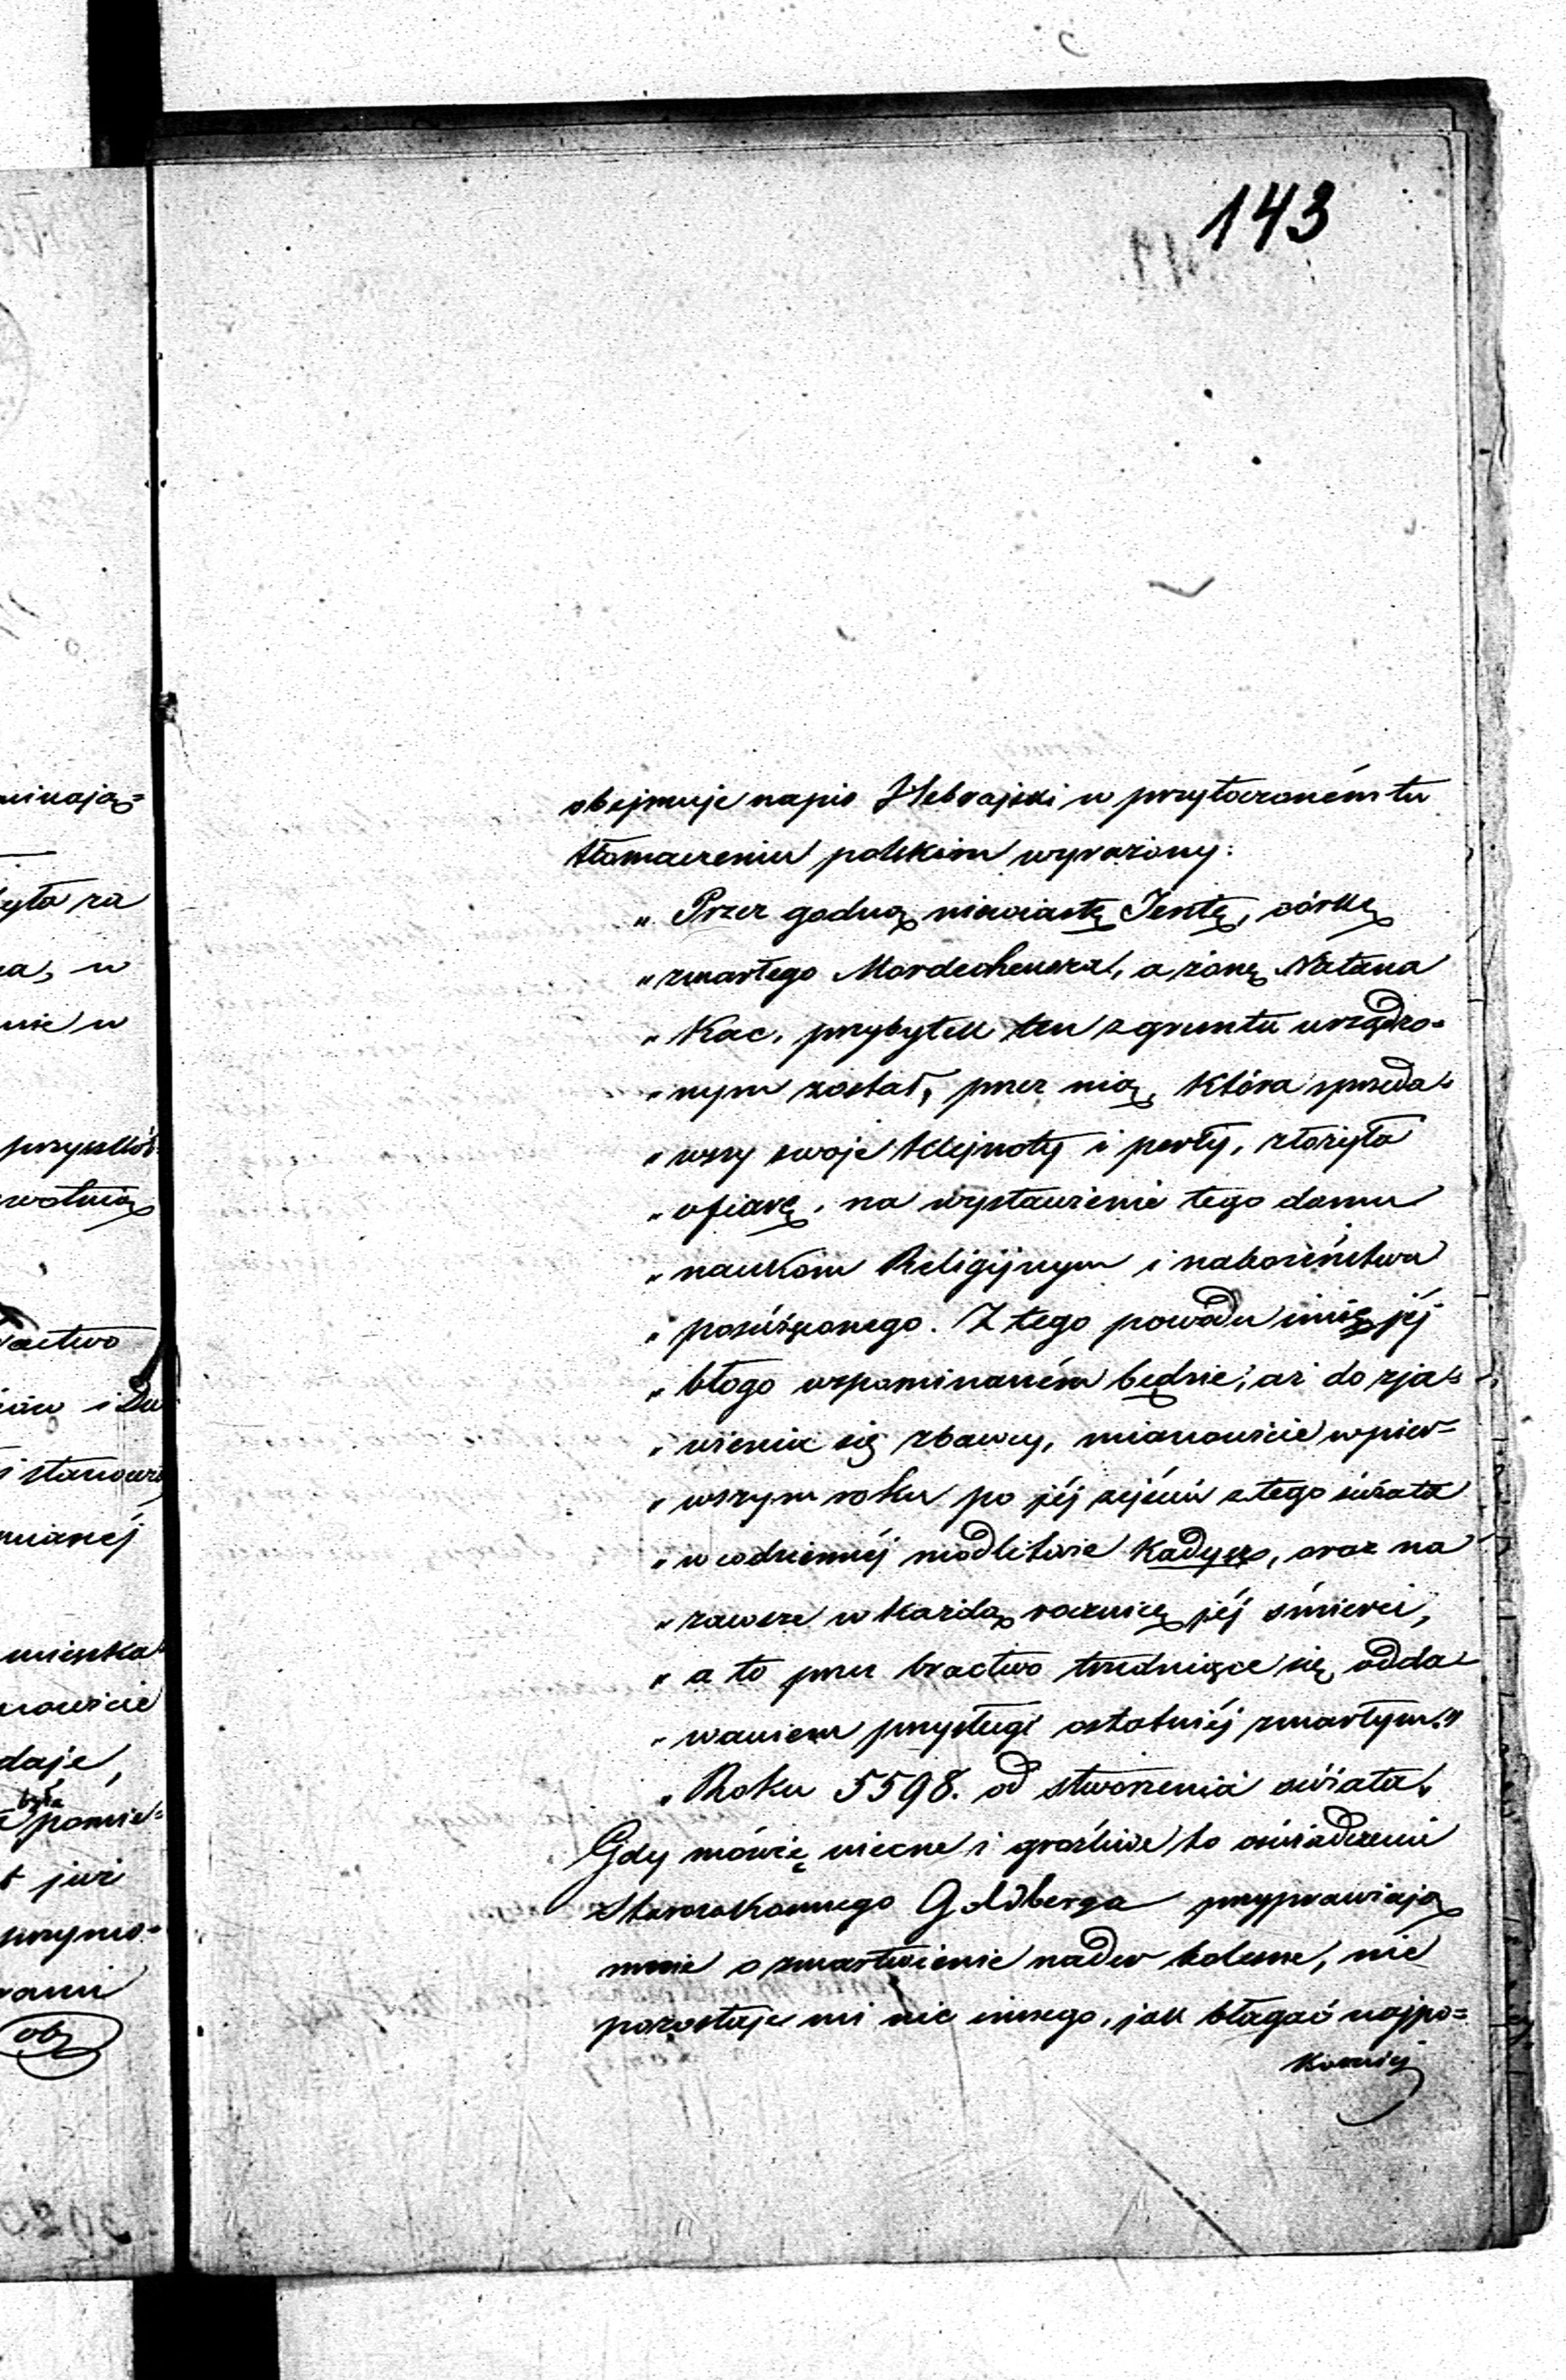 143
obejmuje napis Hebrajski w przytoczoném tu
tłomaczeniu polskim wyrażony:
„ Przez godną niewiastę Jentę, córkę
„ zmarłego Mordecheusza, a żonę Natana
„ Kac, przybytek ten z gruntu urządzo=
„ nym został, przez nią, która sprzeda=
„ wszy swoje klejnoty i perły, złożyła
„ ofiarę, na wystawienie tego domu
„ naukom Religijnym i nabożeństwu
„ poświęconego. Z tego powodu imię jéj
„ błogo wspominaném będzie, aż do zja=
„ wienia się zbawcy, mianowicie w pier=
„ wszym roku po jéj zejściu z tego świata
„ w codziennéj modlitwie Kadysz, oraz na
„ zawsze w każdą rocznicę jéj śmierci,
„ a to przez bractwo trudniące się odda=
„ waniem przysługi ostatniéj zmarłym."
„ Roku 5598. od stworzenia świata.
Gdy mówię niecne i groźliwe to oświadczenie
Starozakonnego Goldberga przyprawiają
mnie o zmartwienie nader bolesne, nie
pozostaje mi nic innego, jak błagać najpo=
korniéj
minają=
yła za
a, w
nie w
przyszłoś
wotnią
ractwo
i Du
i stanowi
mianéj
mieszka
nowicie
daje,
była
pomie=
t już
przymo=
rami
ob